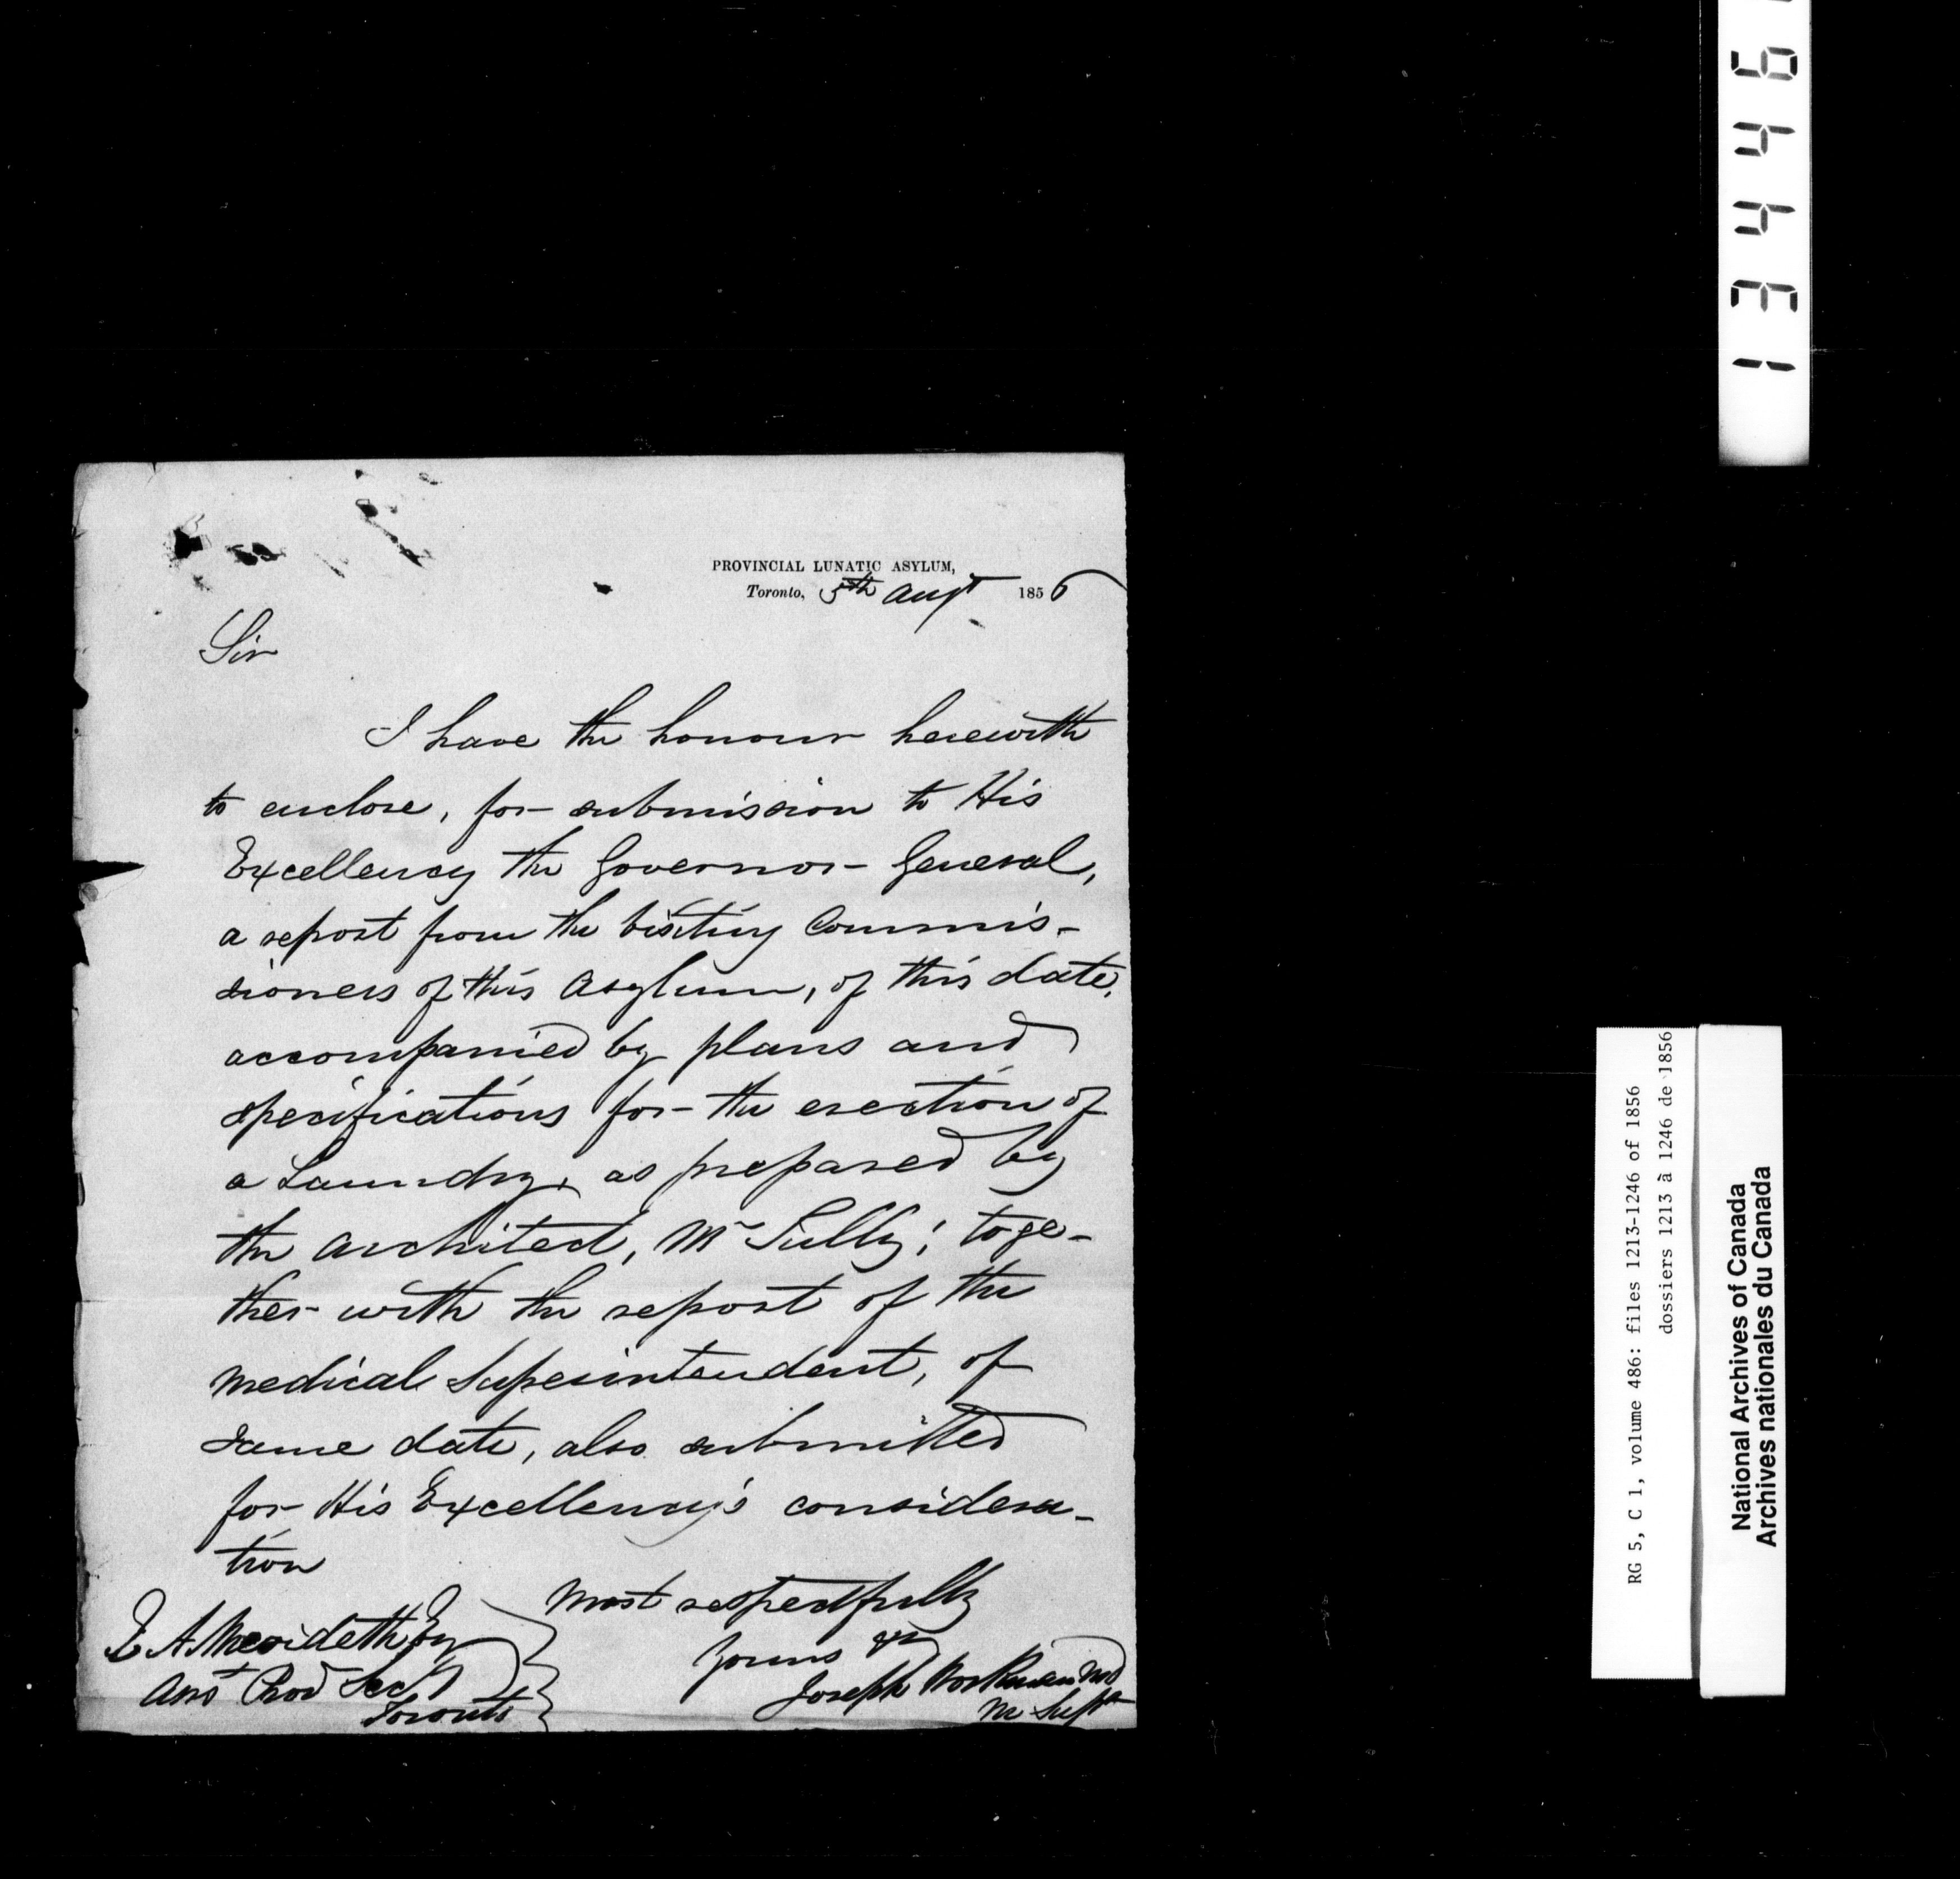 PROVINCIAL LUNATIC ASYLUM,
Toronto, 5th Augt 1856
Sir
I have the honour herewith
to enclose, for submission to His
Excellency the Governor General,
a report from the Visiting Commis-
sioners of this Asylum, of this date,
accompanied by plans and
specifications for the erection of
a Laundry, as prepared by
the Architect, Mr Tully; toge-
ther with the report of the
Medical Superintendent, of
same date, also submitted
for His Excellency's considera-
tion
Most respectfully
Yours &c
Joseph Workman MD
M Supt
E A Meredith Esq
Asst Prov Secy
Toronto
13446
RG 5, C 1, volume 486: files 1213-1246 of 1856
dossiers 1213 à 1246 de 1856
National Archives of Canada
Archives nationales du Canada